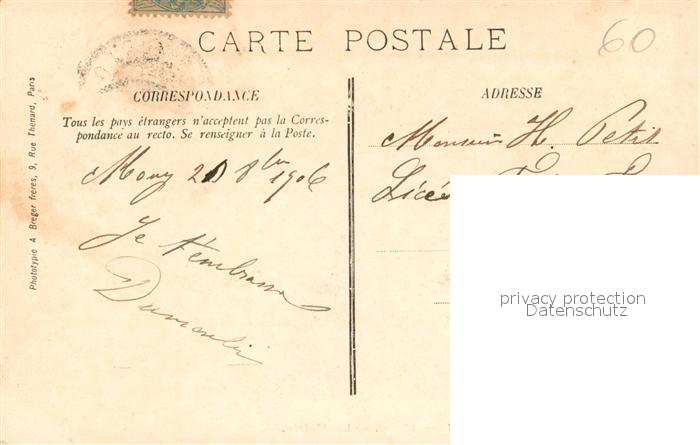 CARTE POSTALE
60
CORRESPONDANCE
Tous les pays étrangers n'acceptent pas la Corres-
pondance au recto. Se renseigner à la Poste.
Mouy 20 8bre 1906
Je t'embrasse
Dumoulin
ADRESSE
Monsieur H. Petit
privacy protection
Datenschutz
Phototypie A Breger frères, 9, Rue Thénard, Paris